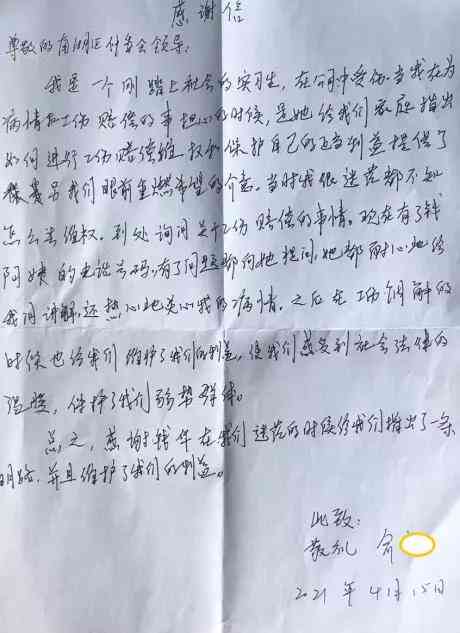 感谢信
尊敬的南湖区什务会领导:
我是一个刚踏上社会的实习生,在公司中受伤.当我在为
病情和工伤赔偿的事担心的时候,是她给我们家庭指出
如何进行工伤赔偿维权和保护自己的正当利益提供了
另我们眼前重燃希望的介意。当时我很迷茫都不知
怎么去维权。到处询问关于工伤赔偿的事情。现在有了钱
阿姨的电话号码,有了问题都向她提问,她都耐心地给
我们讲解,还热心地关心我的病情。之后在工伤调解的
时候也给我们维护了我们的利益,使我们感受到社会法律的
温暖,保护了我们弱势群体。
总之,感谢钱年在我们迷茫的时候给我们指出了一条
明路.并且维护了我们的利益。
此致:
敬礼 俞
2021年4月15日